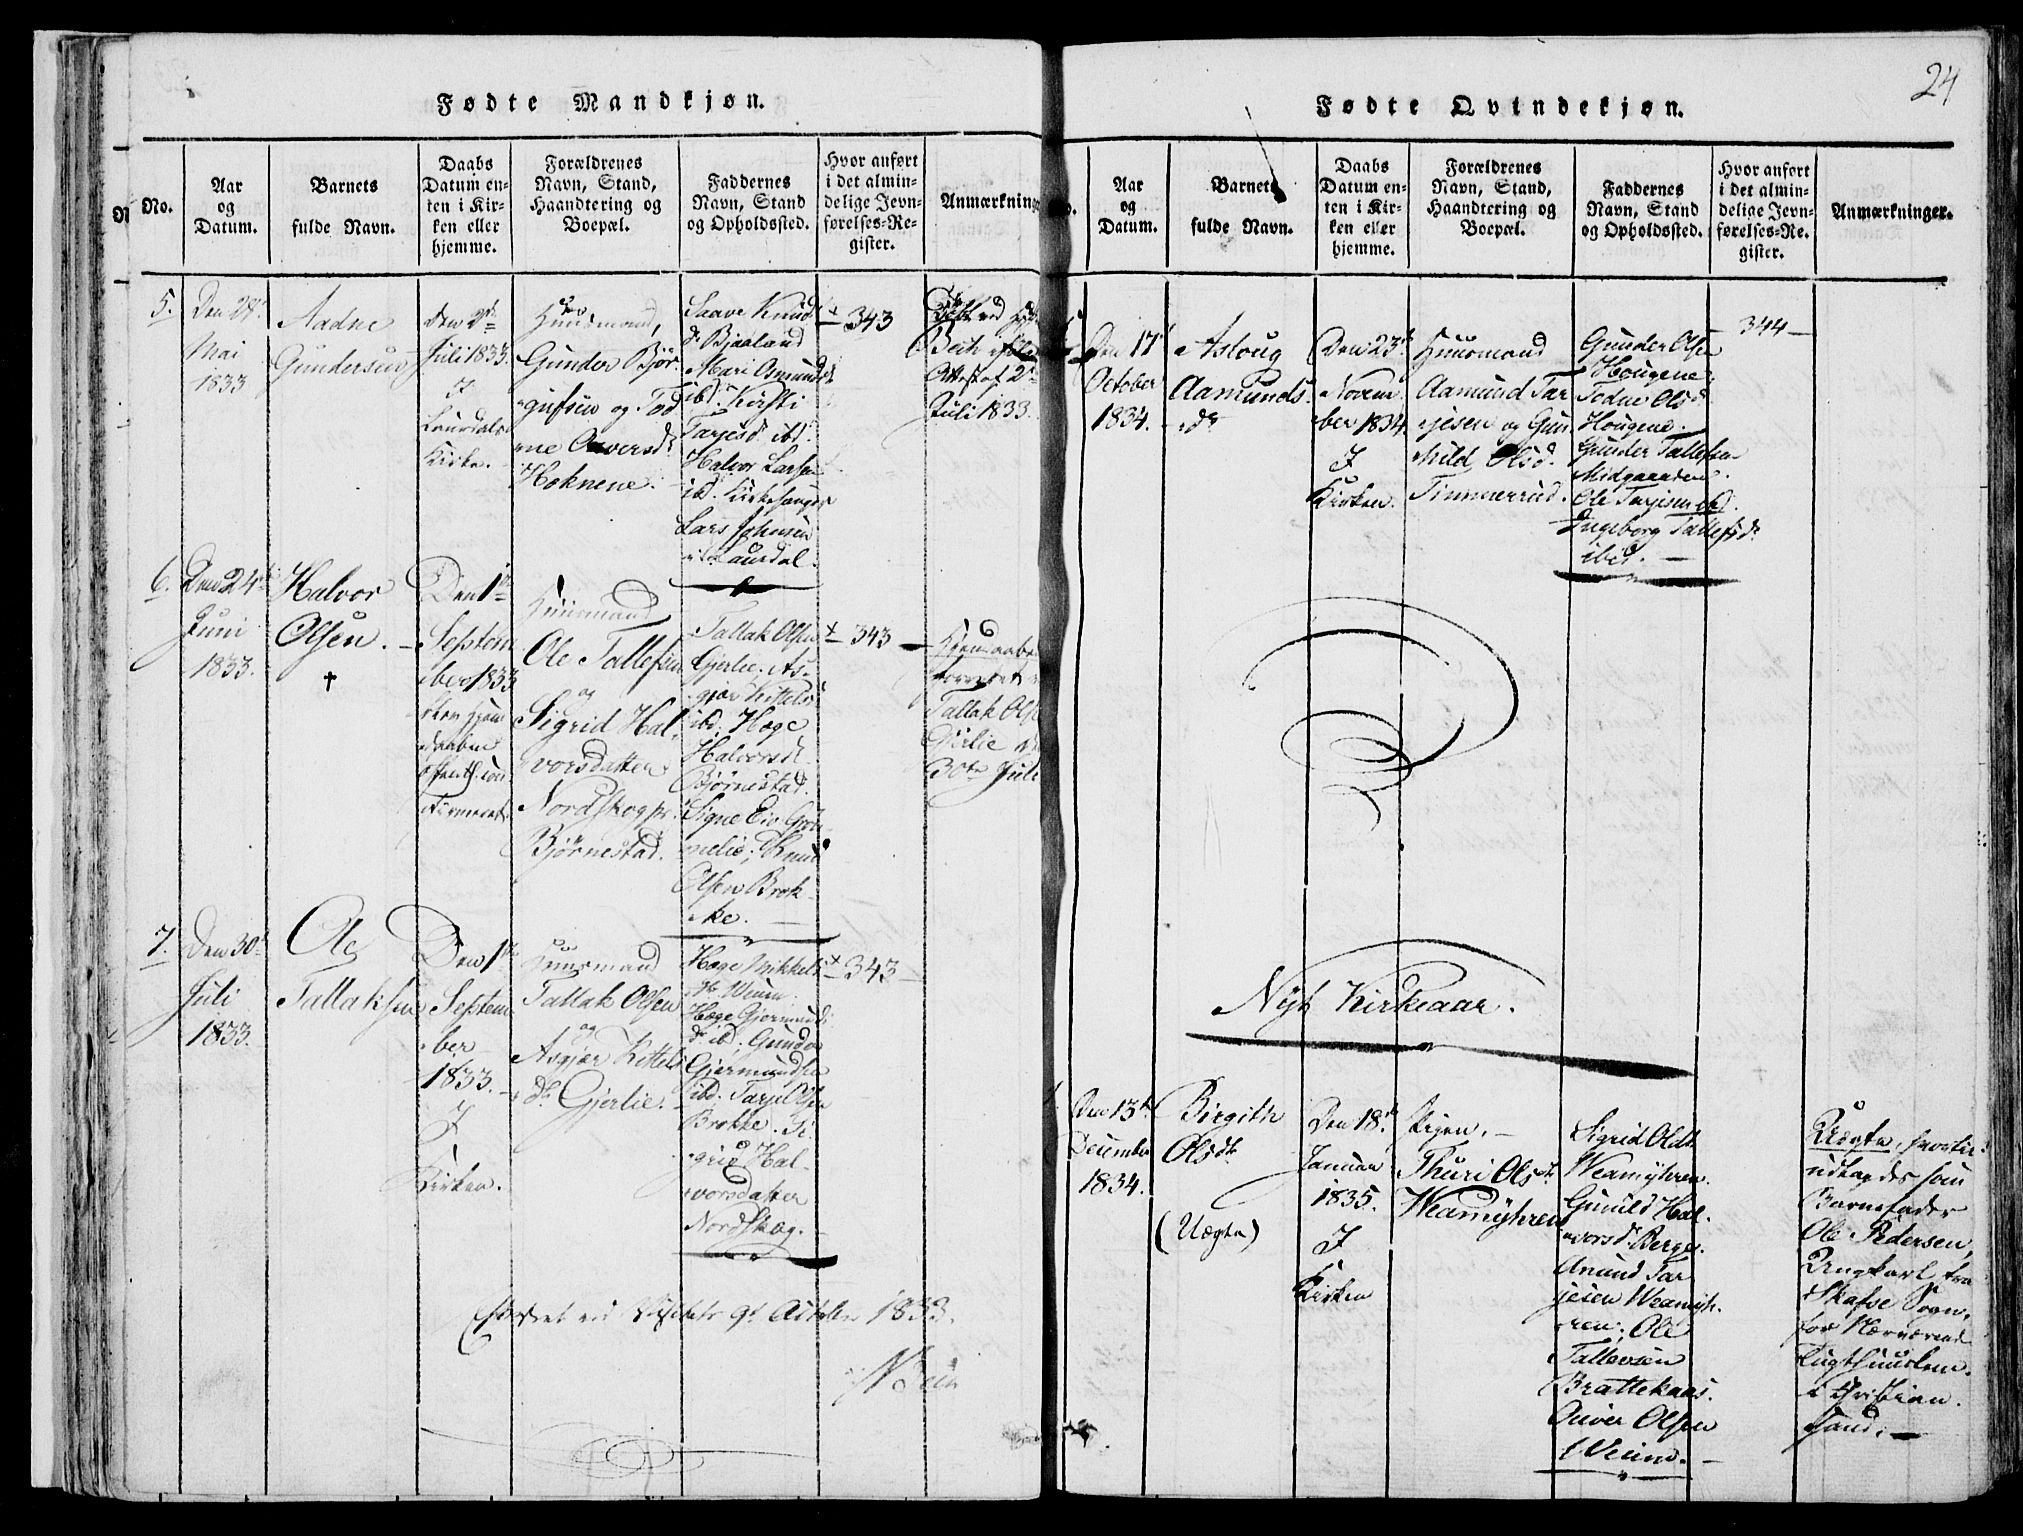 24
Fødte Mandkjøn.
No.
Aar
og
Datum.
Barnets
fulde Navn.
Daabs
Datum en-
ten i Kir-
ken eller
hjemme.
Forældrenes
Navn, Stand,
Haandtering og
Boepæl.
Faddernes
Navn, Stand
og Opholdssted.
Hvor anført
i det almin-
delige Jevn-
førelses-Re-
gister.
Anmærkninge
5.
Mai
1833
Aadne
Gundersen
Den 2de
Juli 1833.
I
Laurdals
Kirke.
Huusmand,
Gunder Bjør-
gufsen og Tod
ne Ouversd
Hoknene.
Saave Knuds
dr Bjaaland
Mari Osmundsd
ibd. Kirsti
Tarjesd. ibd.
Halvor Larsen
ibd. Kirkesanger
Lars Johnsen
Laurdal.
343
Juli 1833.
6.
Den 24de
Juni
1833.
Halvor
Olsen.
†
Den 1te
Septem
ber 1833
Huusmand
Ole Tallefsen
og
Sigrid Hal-
vorsdatter
Nordskog pr.
Bjørnestad.
Tallak Olsen
Gjerlie. As-
gjær Kittelsd
ibd. Hæge
Halvorsd.
Bjørnestad.
Signe Eiv. Grøn-
nelie; Knud
Olsen Brok-
ke.
343
Tallak Olse
Gjerlie
30te Juli
7.
Den 30te
Juli
1833.
Ole
Tallaksen
Den 1te
Septem
ber
1833.
I
Kirken.
Huusmand
Tallak Olsen
og
Asgjær Kittels
dr Gjerlie.
Hæge Mikkels
dr Ueum.
Hæge Gjermunds
dr ibd. Gunder
Gjermundsen
ibd. Tarjei Olsen
Brokke. Si-
grid Hal-
vorsdatter
Nordskog.
343
1833.
Fødte Qvindekjøn.
Aar
og
Datum.
Barnets
fulde Navn.
Daabs
Datum en-
ten i Kir-
ken eller
hjemme.
Forældrenes
Navn, Stand,
Haandtering og
Boepæl.
Faddernes
Navn, Stand
og Opholdssted.
Hvor anført
i det almin-
delige Jevn-
førelses-Re-
gister.
Anmærkninger.
Den 17de
October
1834.
Asloug
Aamunds-
dr
Den 23de
Novem
ber 1834.
I
Kirken.
Huusmand
Aamund Tar
jesen og Gun
hild Olsd.
Timmerrud.
Gunder Olsen
Hougene.
Todne Olsd
Hougene.
Gunder Tallefsen
Midgaarden.
Ole Tarjesen ibd.
Ingeborg Tallefsdr
ibid.
344
Nyt Kirkeaar.
Den 13de
December
1834.
Birgith
Olsdtr
(Uægte)
Den 18de
Januar
1835.
I
Kirken
Pigen.
Thuri Olsdtr
Weamyhren
Sigrid Olsdtr
Weamyhren.
Gunild Hal-
vorsd. Berge.
Anund Tar
jesen Weamyh-
ren. Ole
Tallevsen
Brattekaas.
Ouver Olsen
Ueum.
Uægte,
udlagdes som
Barnefader
Ole Pedersen,
Ungkarl fra
Skafse Sogn,
for Nærværende
Tugthuuslem
i Christian-
sand.